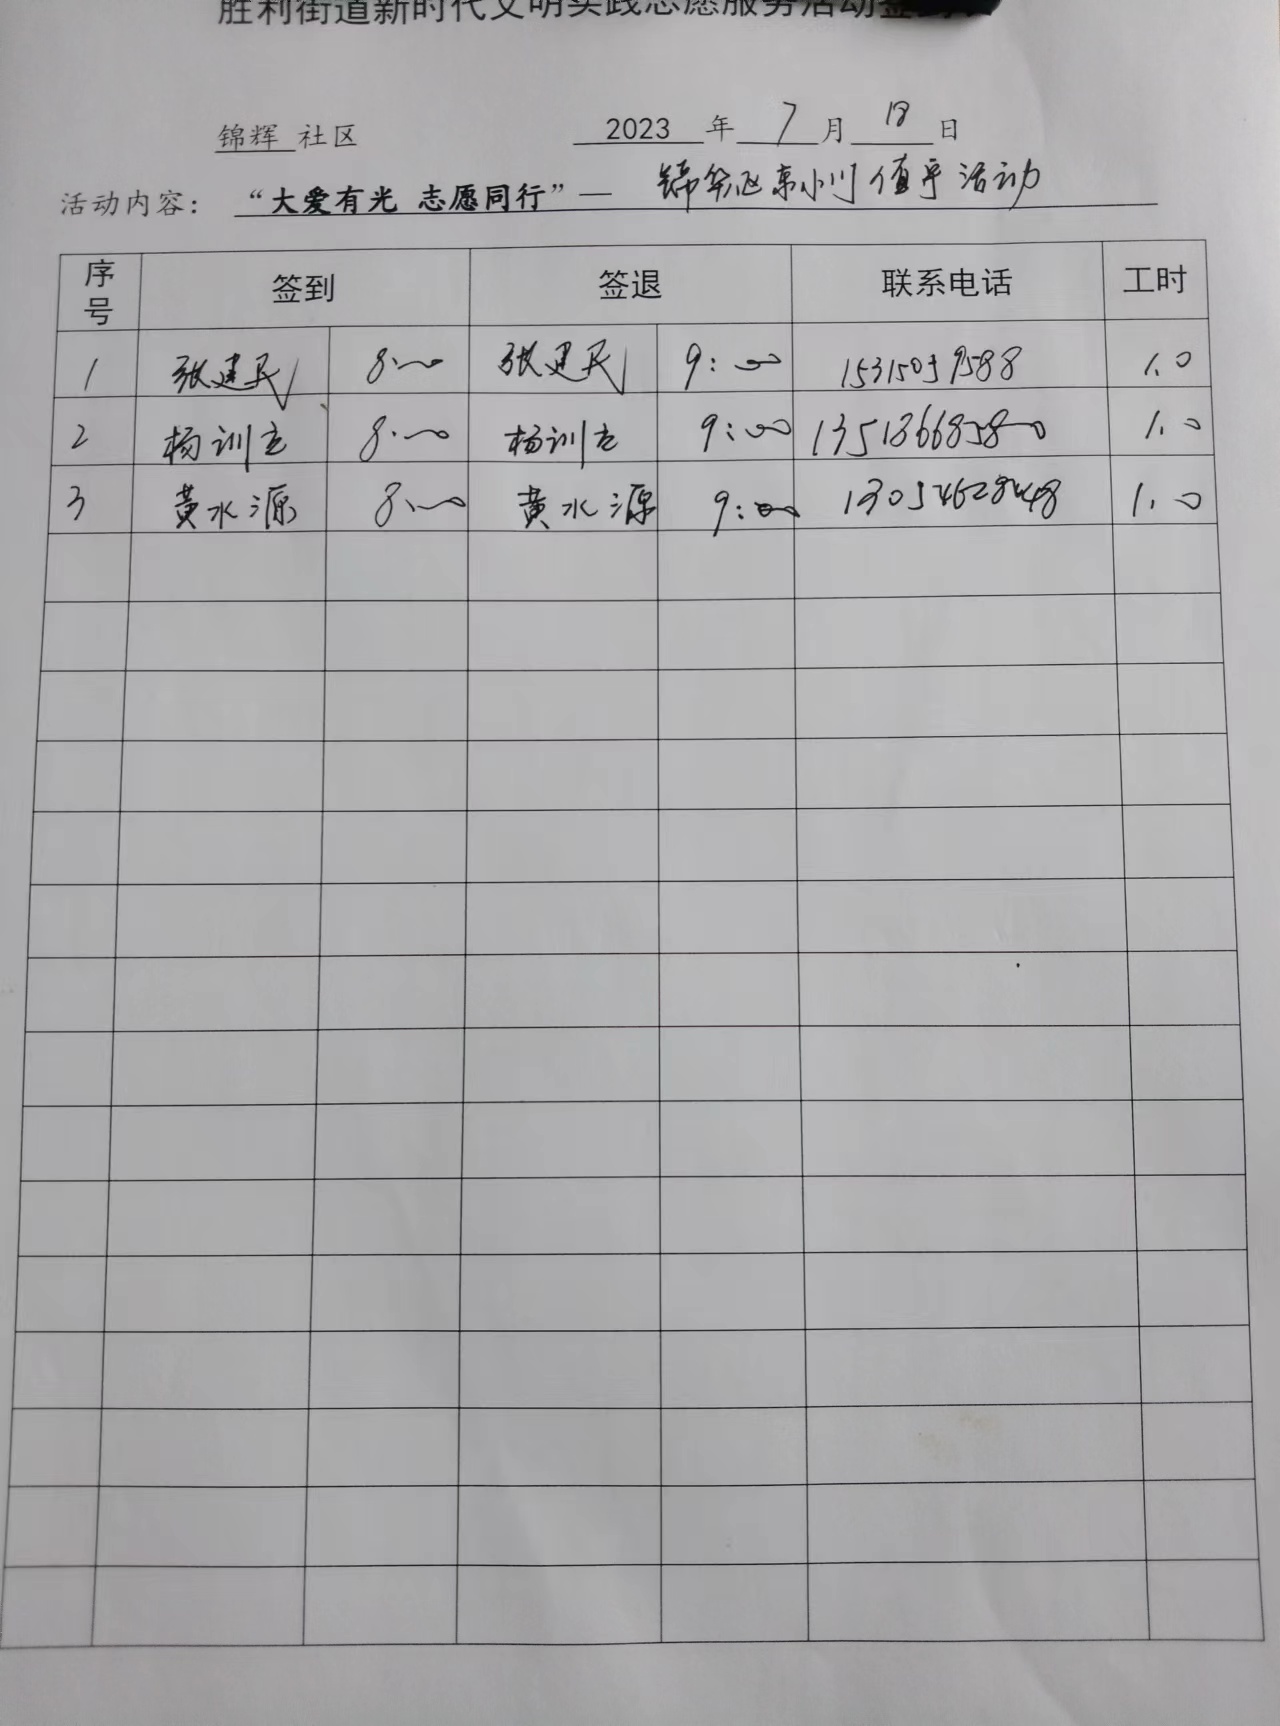 胜利街道新时代文明实践志愿服务活动签到
锦辉 社区 2023 年 7 月 18 日
活动内容： “大爱有光 志愿同行”— 锦华 小川值守活动
序号 签到 签退 联系电话 工时
1 张建民 8:00 张建民 9:00 15315059588 1.0
2 杨训立 8:00 杨训立 9:00 13518668580 1.0
3 黄水源 8:00 黄水源 9:00 13054628448 1.0